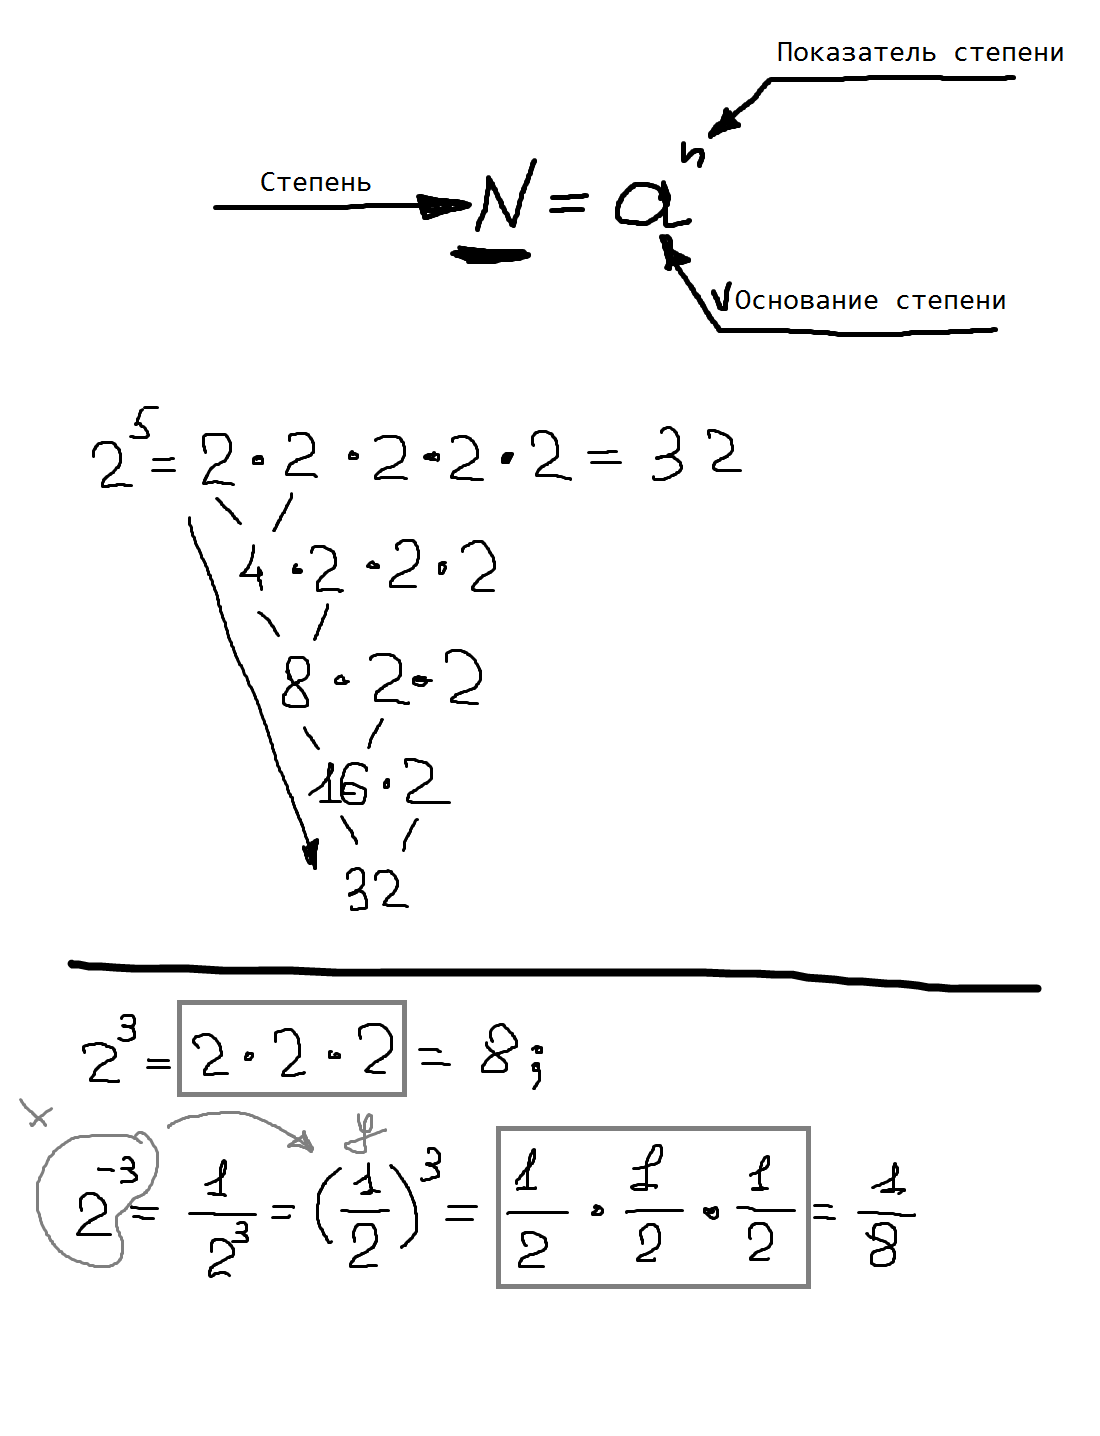 Показатель степени
Степень
N = aⁿ
Основание степени
2⁵ = 2 · 2 · 2 · 2 · 2 = 32
4 · 2 · 2 · 2
8 · 2 · 2
16 · 2
32
2³ = 2 · 2 · 2 = 8;
x
y
2⁻³ = 1/2³ = (1/2)³ = 1/2 · 1/2 · 1/2 = 1/8